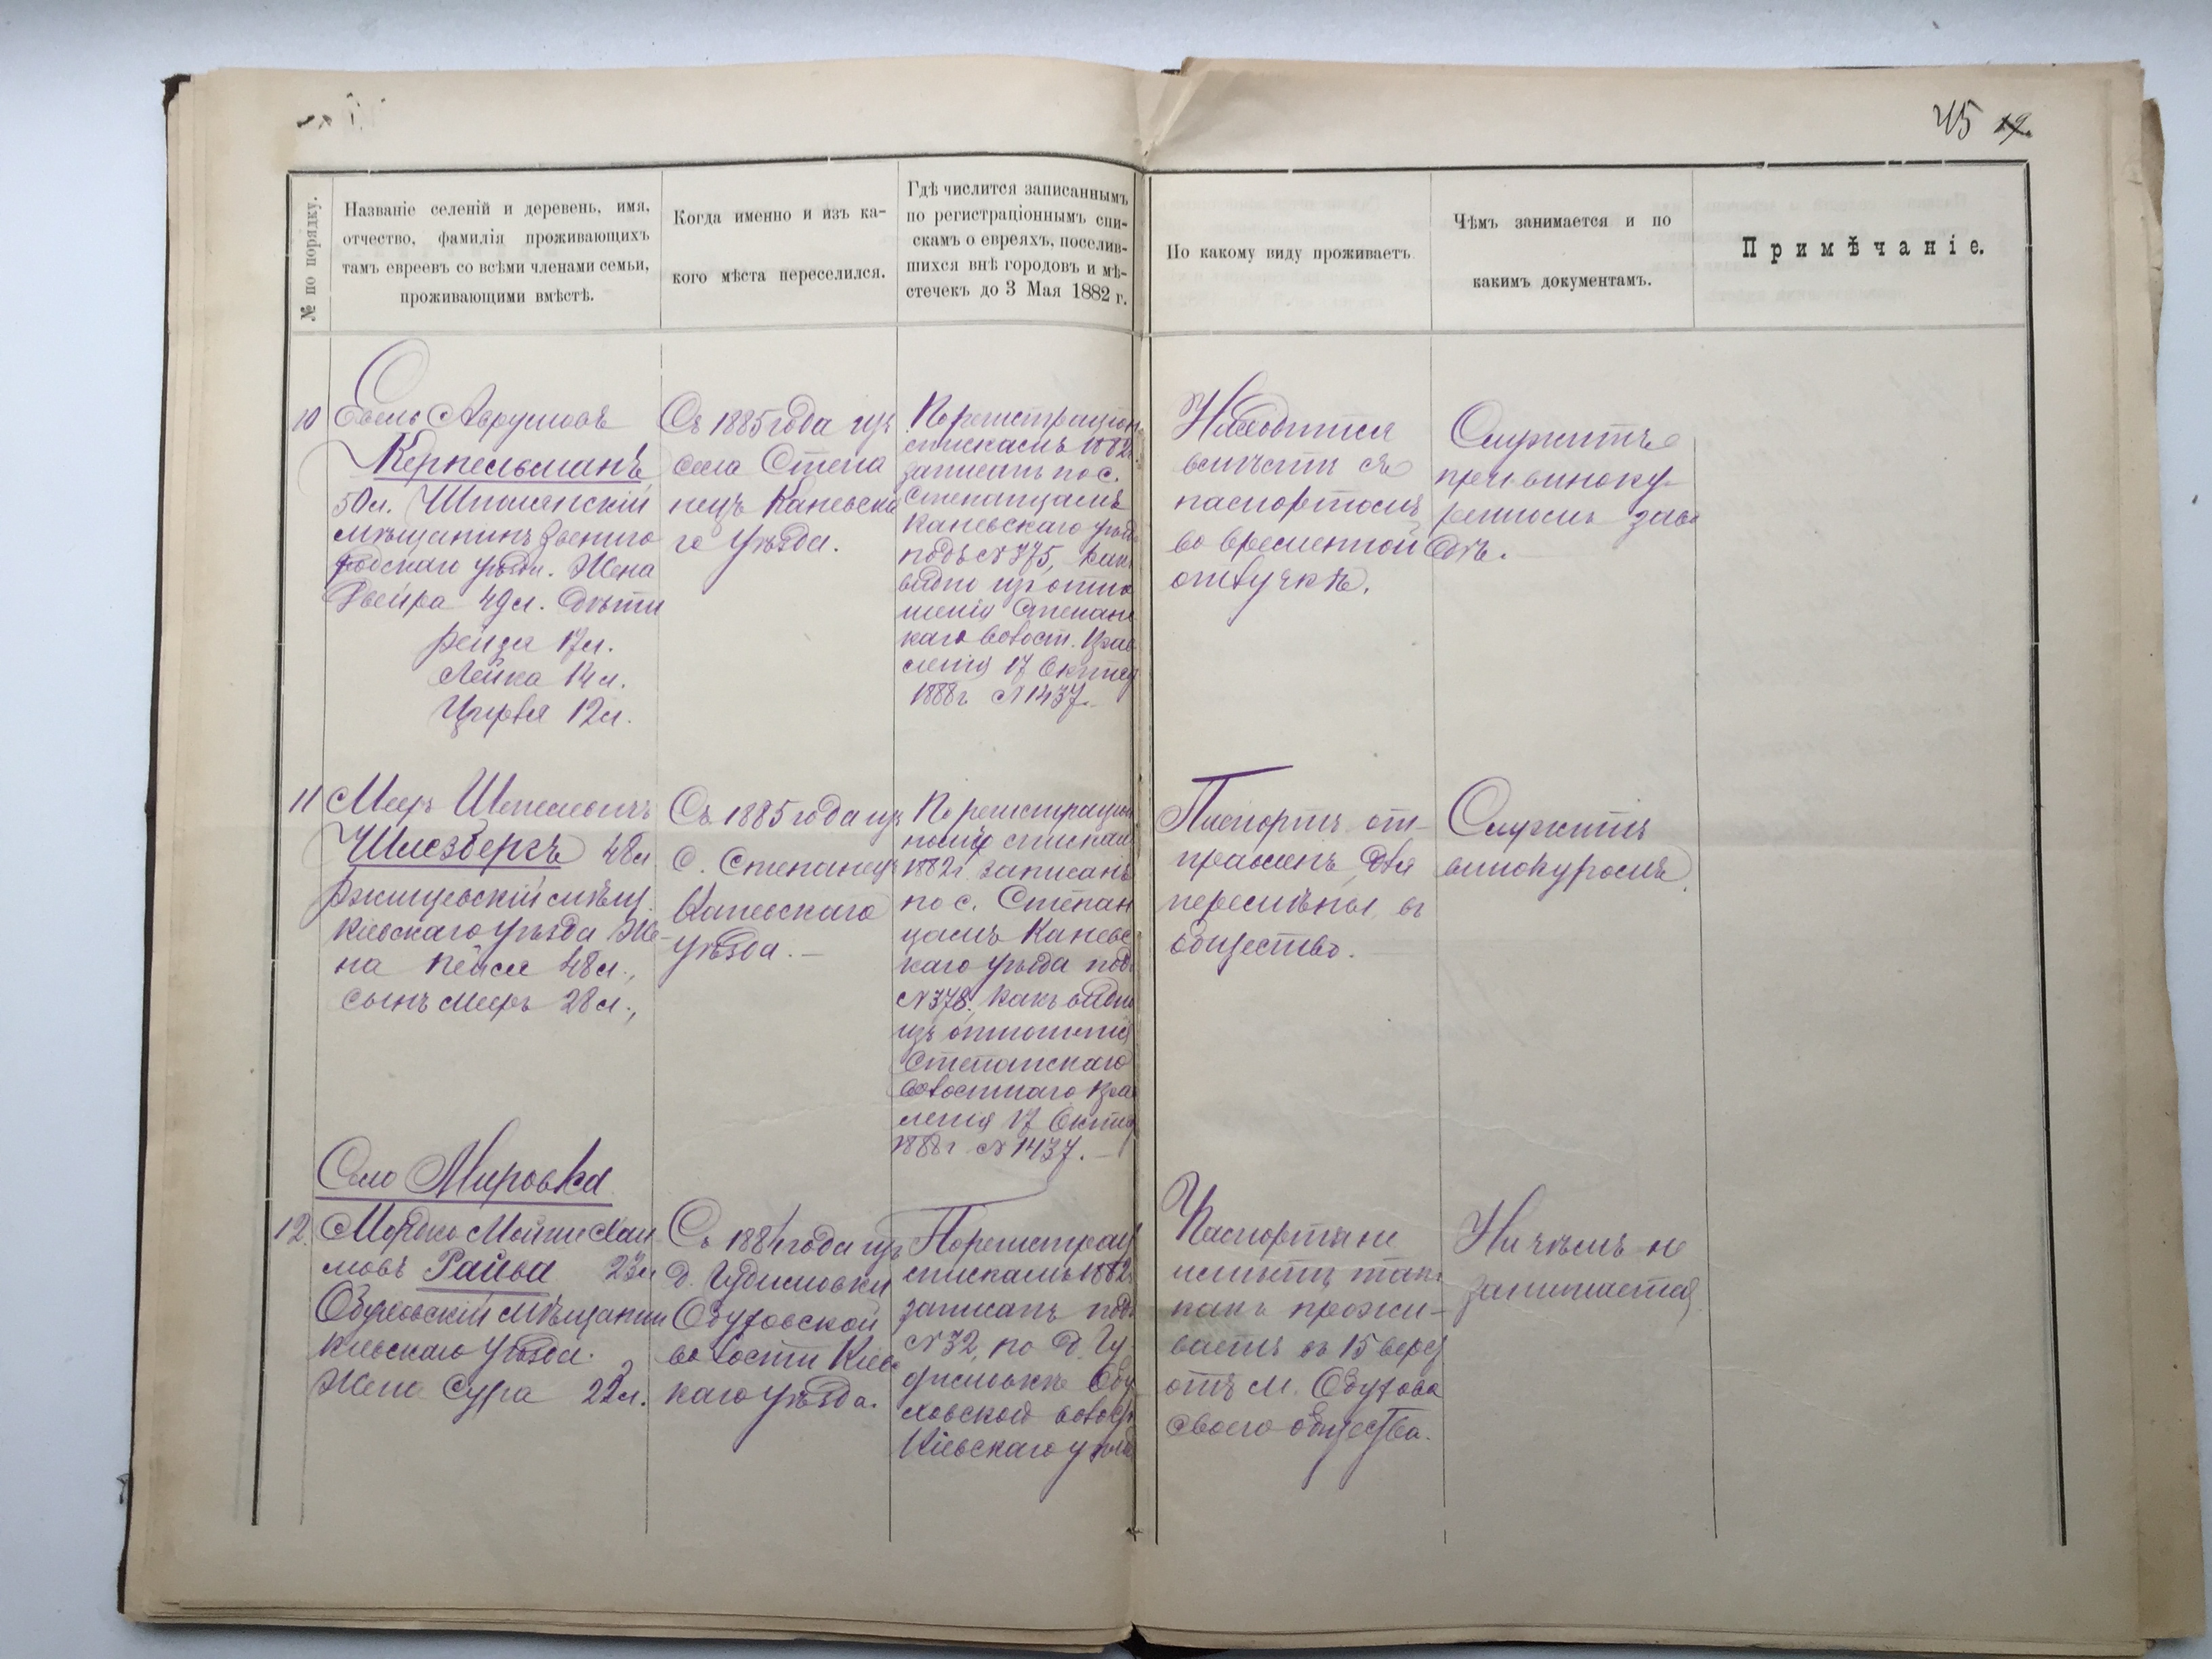 45 19.
№ по порядку.
Названіе селеній и деревень, имя,
отчество, фамилія проживающихъ
тамъ евреевъ со всѣми членами семьи,
проживающими вмѣстѣ.
Когда именно и изъ ка-
кого мѣста переселился.
Гдѣ числится записаннымъ
по регистраціоннымъ спи-
скамъ о евреяхъ, поселив-
шихся внѣ городовъ и мѣ-
стечекъ до 3 Мая 1882 г.
По какому виду проживаетъ
Чѣмъ занимается и по
какимъ документамъ.
Примѣчаніе.
10
Кернельманъ
50 л.
мѣщанинъ Звениго
родскаго уѣзда. Жена
Двейра 49 л. дѣти
Рейзя 17 л.
Лейка 14 л.
12 л.
Съ 1885 года изъ
села Степа
нецъ Каневска
го уѣзда.
По регистраціон
спискамъ 1882
записанъ по с.
Степанцамъ
Каневскаго уѣзд
подъ № 375, как
видно изъ отно
шенія Степан
каго волост. Прав
ленія 17 Октяб
1888 г № 1437.
Находится
вмѣстѣ съ
паспортомъ
во временной
отлучкѣ.
Служитъ
при виноку-
ренномъ заво
дѣ.
11
Шмезберкъ 48 л
Ржищевскій мѣщ.
Кіевскаго уѣзда Же-
на Пейся 48 л.,
сынъ Мееръ 28 л.,
Съ 1885 года изъ
с. Степанецъ
Каневскаго
уѣзда. —
По регистрацион
нымъ спискам
1882 г. записанъ
по с. Степан
цамъ Каневс
каго уѣзда подъ
№ 378, какъ видно
изъ отношенія
Степанскаго
волостнаго прав
ленія 17 Октяб
1888 г № 1437. —
Паспортъ от-
правленъ для
перемѣны въ
общество. —
Служитъ
винокуромъ.
Село Мировка
12.
Мордко Мойше Хаи
мовъ Райва 23 л
Обуховскій мѣщанин
Кіевскаго уѣзда.
Жена Сура 22 л.
Съ 1881 года изъ
Обуховской
волости Кіевс
каго уѣзда.
По регистрац
спискамъ 1882
записанъ подъ
№ 32, по д. Гу
Обу
ховской волост
Кіевскаго уѣзд
Паспорта не
имѣетъ такъ
какъ прожи-
ваетъ въ 15 верс
отъ м. Обухова
своего общества.
Ничѣмъ не
занимается.